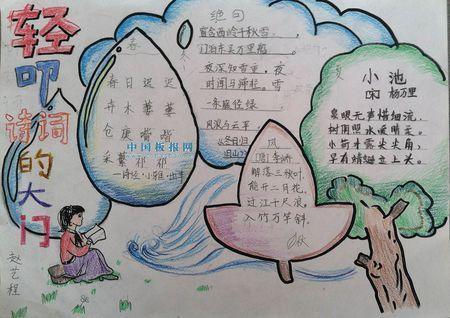 轻叩
诗词
的大门
赵艺程
春
春日迟迟
卉木萋萋
仓庚喈喈
采蘩祁祁
—诗经·小雅·出车
中国板报网
冬
绝句
窗含西岭千秋雪，
门泊东吴万里船。
夜深知雪重，夜
时闻
风
[唐]李峤
解落三秋叶，
能开二月花，
过江千尺浪，
入竹万竿斜。
秋
夏
小池
宋 杨万里
泉眼无声惜细流，
树阴照水爱晴柔。
小荷才露尖尖角，
早有蜻蜓立上头。